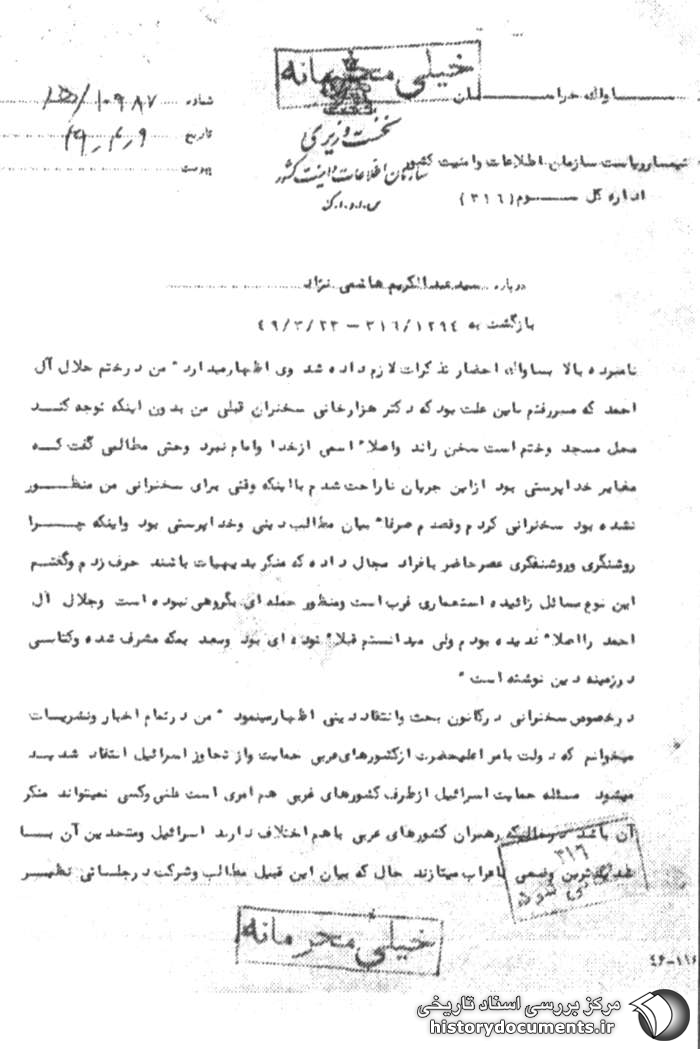 خیلی محرمانه
ساواک خراسان
شماره ۱۰۹۸۷/
تاریخ ۴۹٫۴٫۹
پیوست
نخست وزیری
سازمان اطلاعات و امنیت کشور
س.ا.و.ا.ک
تیمسار ریاست سازمان اطلاعات وامنیت کشور
اداره کل سوم (۳۱۶)
درباره سید عبدالکریم هاشمی نژاد
بازگشت به ۳۱۶/۱۲۹۴ – ۴۹/۳/۲۳
نامبرده بالا بساواک احضار تذکرات لازم داده شد وی اظهارمیدارد " من درختم جلال آل
احمد که منبررفتم باین علت بود که دکتر هزارخانی سخنران قبلی من بدون اینکه توجه کند
محل مسجد وختم است سخن راند واصلا" اسمی ازخدا وامام نبرد وحتی مطالبی گفت که
مغایر خداپرستی بود ازاین جریان ناراحت شدم بااینکه وقتی برای سخنرانی من منظور
نشده بود سخنرانی کردم وقصدم صرفا" بیان مطالب دینی وخداپرستی بود واینکه چرا
روشنگری وروشنفکری عصرحاضر بافراد مجال داده که منکر بدیهیات باشند حرف زدم وگفتم
این نوع مسائل زائیده استعماری غرب است ومنظور حمله ای بگروهی نبوده است وجلال آل
احمد رااصلا" ندیده بودم ولی میدانستم قبلا" توده ای بود وبعد بمکه مشرف شده وکتابی
درزمینه دین نوشته است "
درخصوص سخنرانی درکانون بحث وانتقاد دینی اظهارمینمود " من درتمام اخبار ونشریات
میخوانم که دولت بامر اعلیحضرت ازکشورهای عربی حمایت واز تجاوز اسرائیل انتقاد شدید
میشود مسئله حمایت اسرائیل ازطرف کشورهای غربی هم امری است علنی وکسی نمیتواند منکر
آن باشد درحالیکه رهبران کشورهای عربی باهم اختلاف دارند اسرائیل ومتحدین آن با
شدیدترین وضعی باعراب میتازند حال که بیان این قبیل مطالب وشرکت درجلساتی نظیر
۳۱۶
خیلی محرمانه
۴۶-۱۱۶
مرکز بررسی اسناد تاریخی
historydocuments.ir